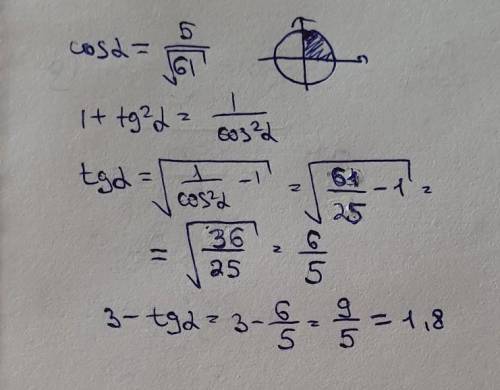 cosα = 5/√61
1 + tg²α = 1/cos²α
tgα = √(1/cos²α - 1) = √(61/25 - 1) =
= √(36/25) = 6/5
3 - tgα = 3 - 6/5 = 9/5 = 1,8